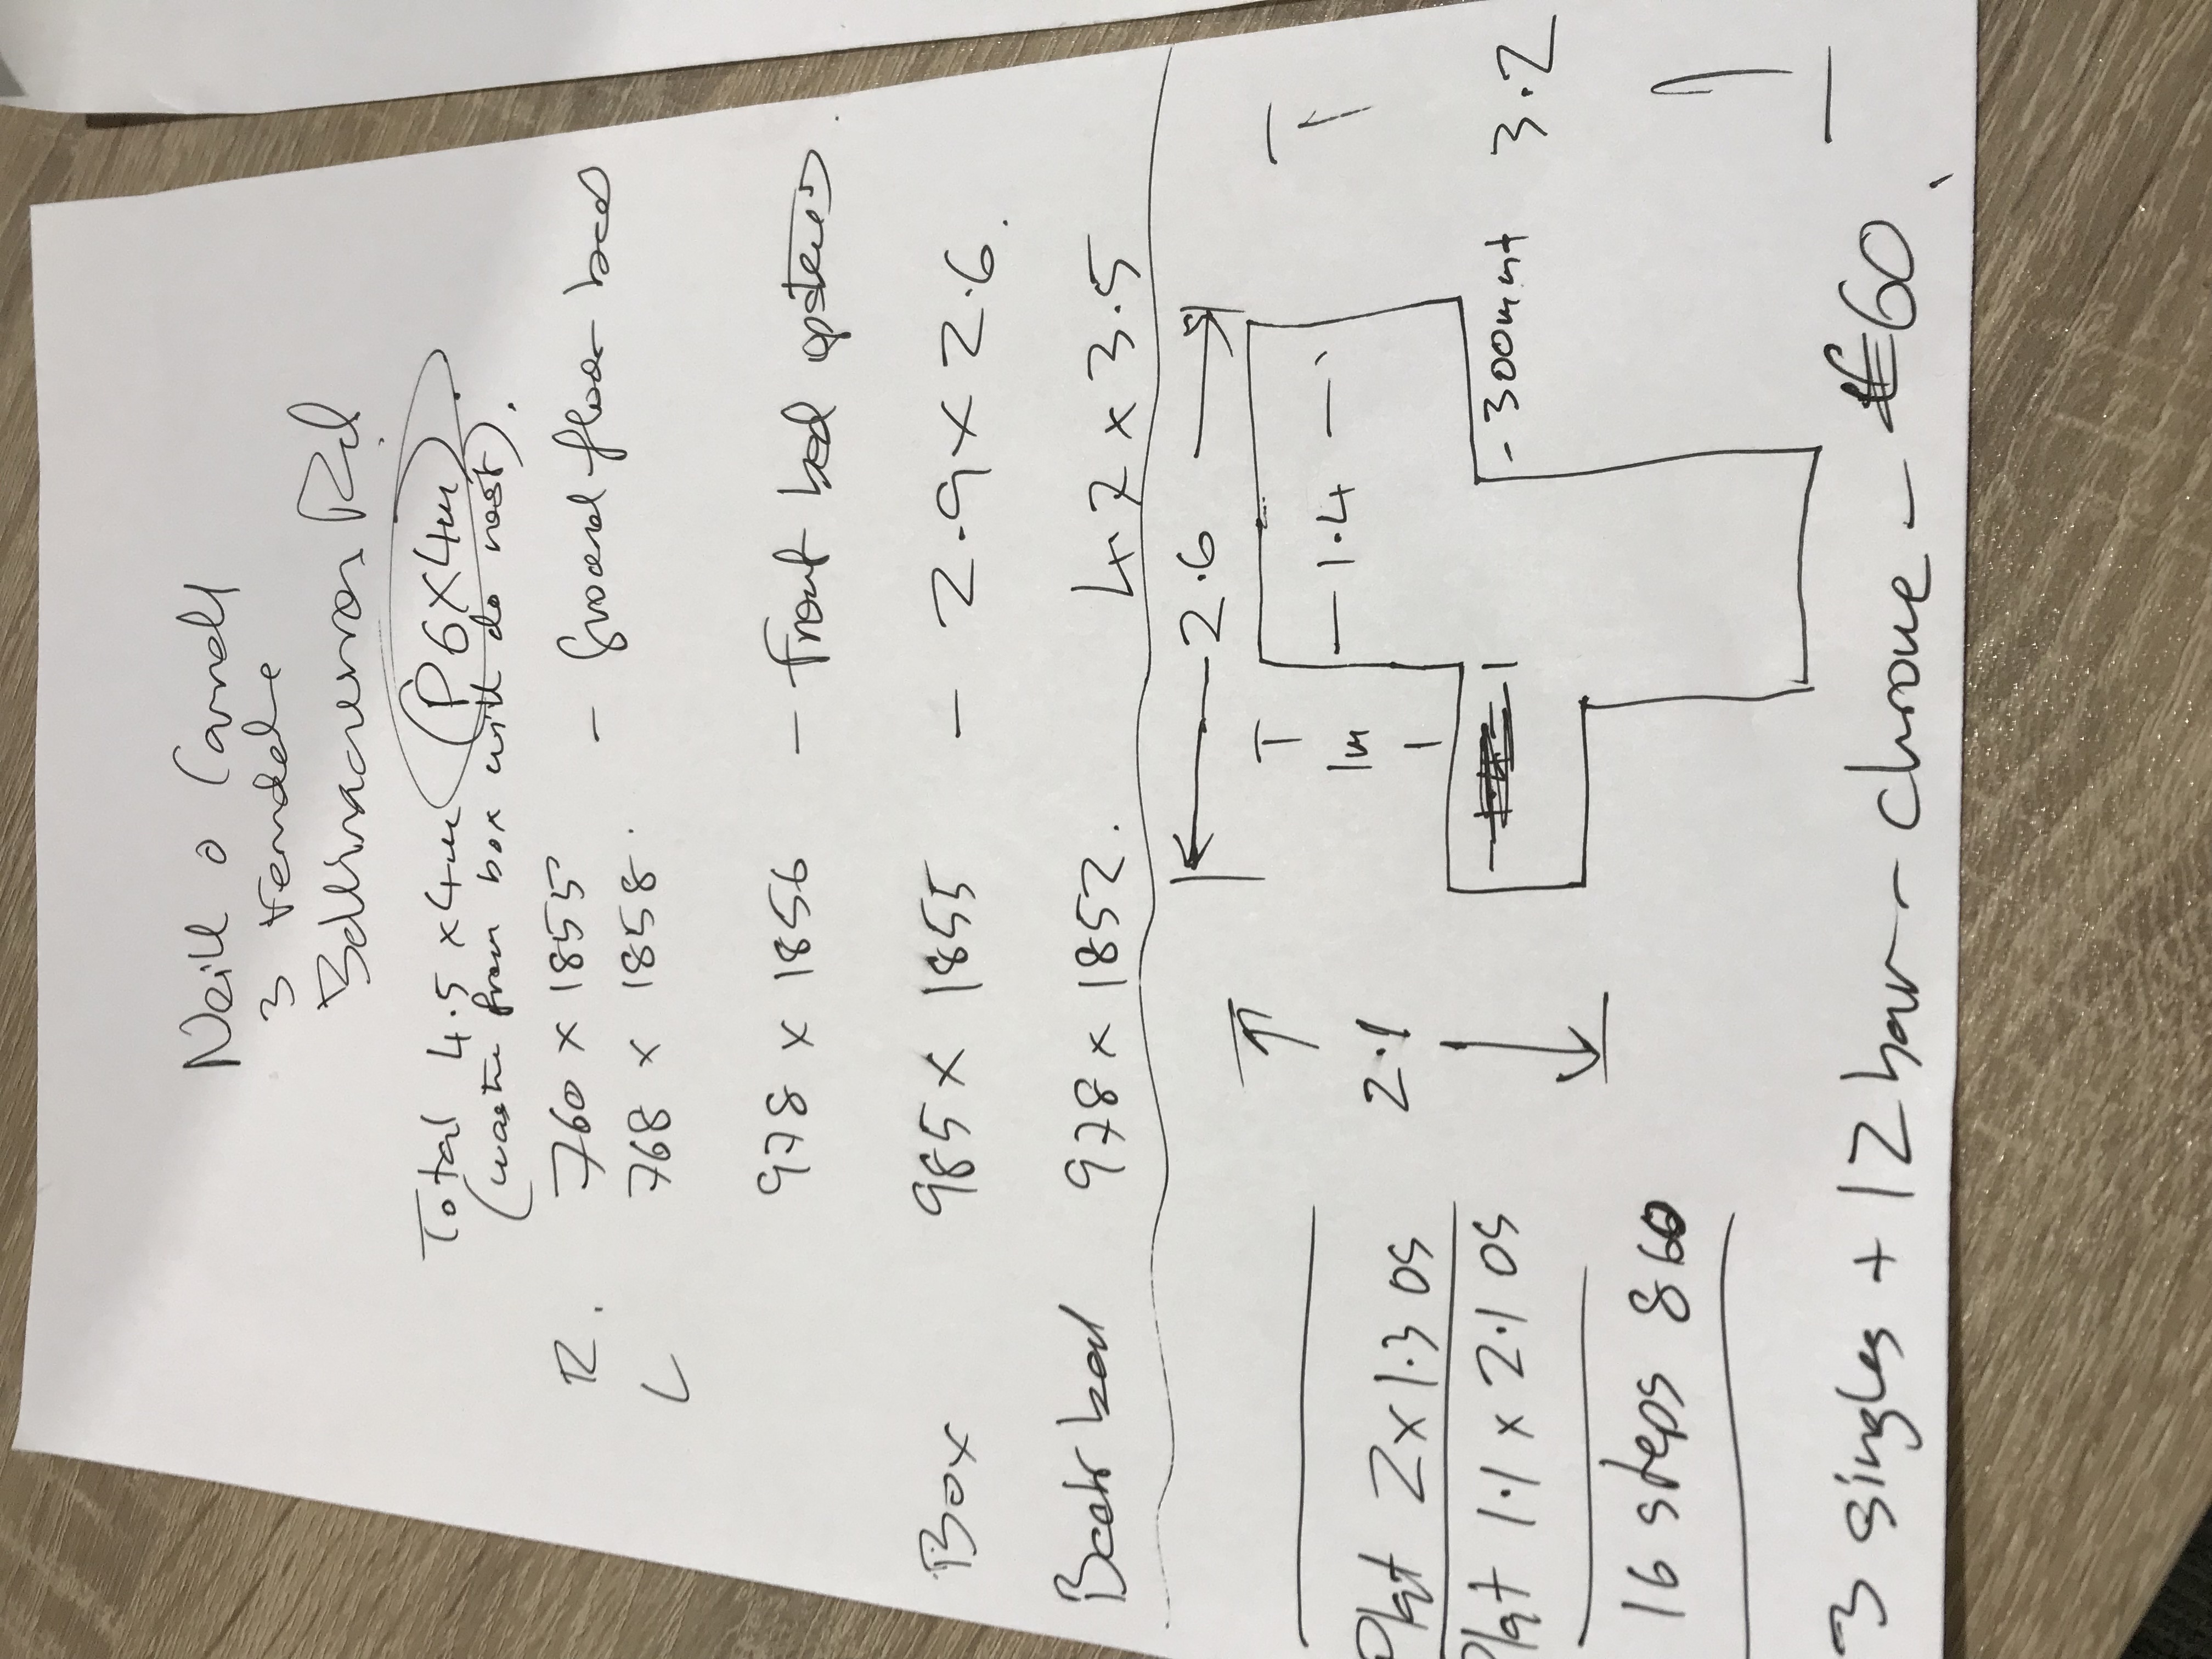 Neill O
3 Ferndale
Rd
Total 4.5 x 4m (P 6 x 4m)
(waste from box will do rest).
R. 760 x 1855 - Ground floor bed
L 768 x 1858.
978 x 1856 - Front bed upstairs.
Box 985 x 1855 - 2.9 x 2.6.
Back bed 978 x 1852. 4.7 x 3.5
2.6
1m
1.4
2.1
- 300mm+
3.2
Plat 2 x 1.3 OS
Plat 1.1 x 2.1 OS
16 steps 860
3 singles + 12 bar - chrome - £60.